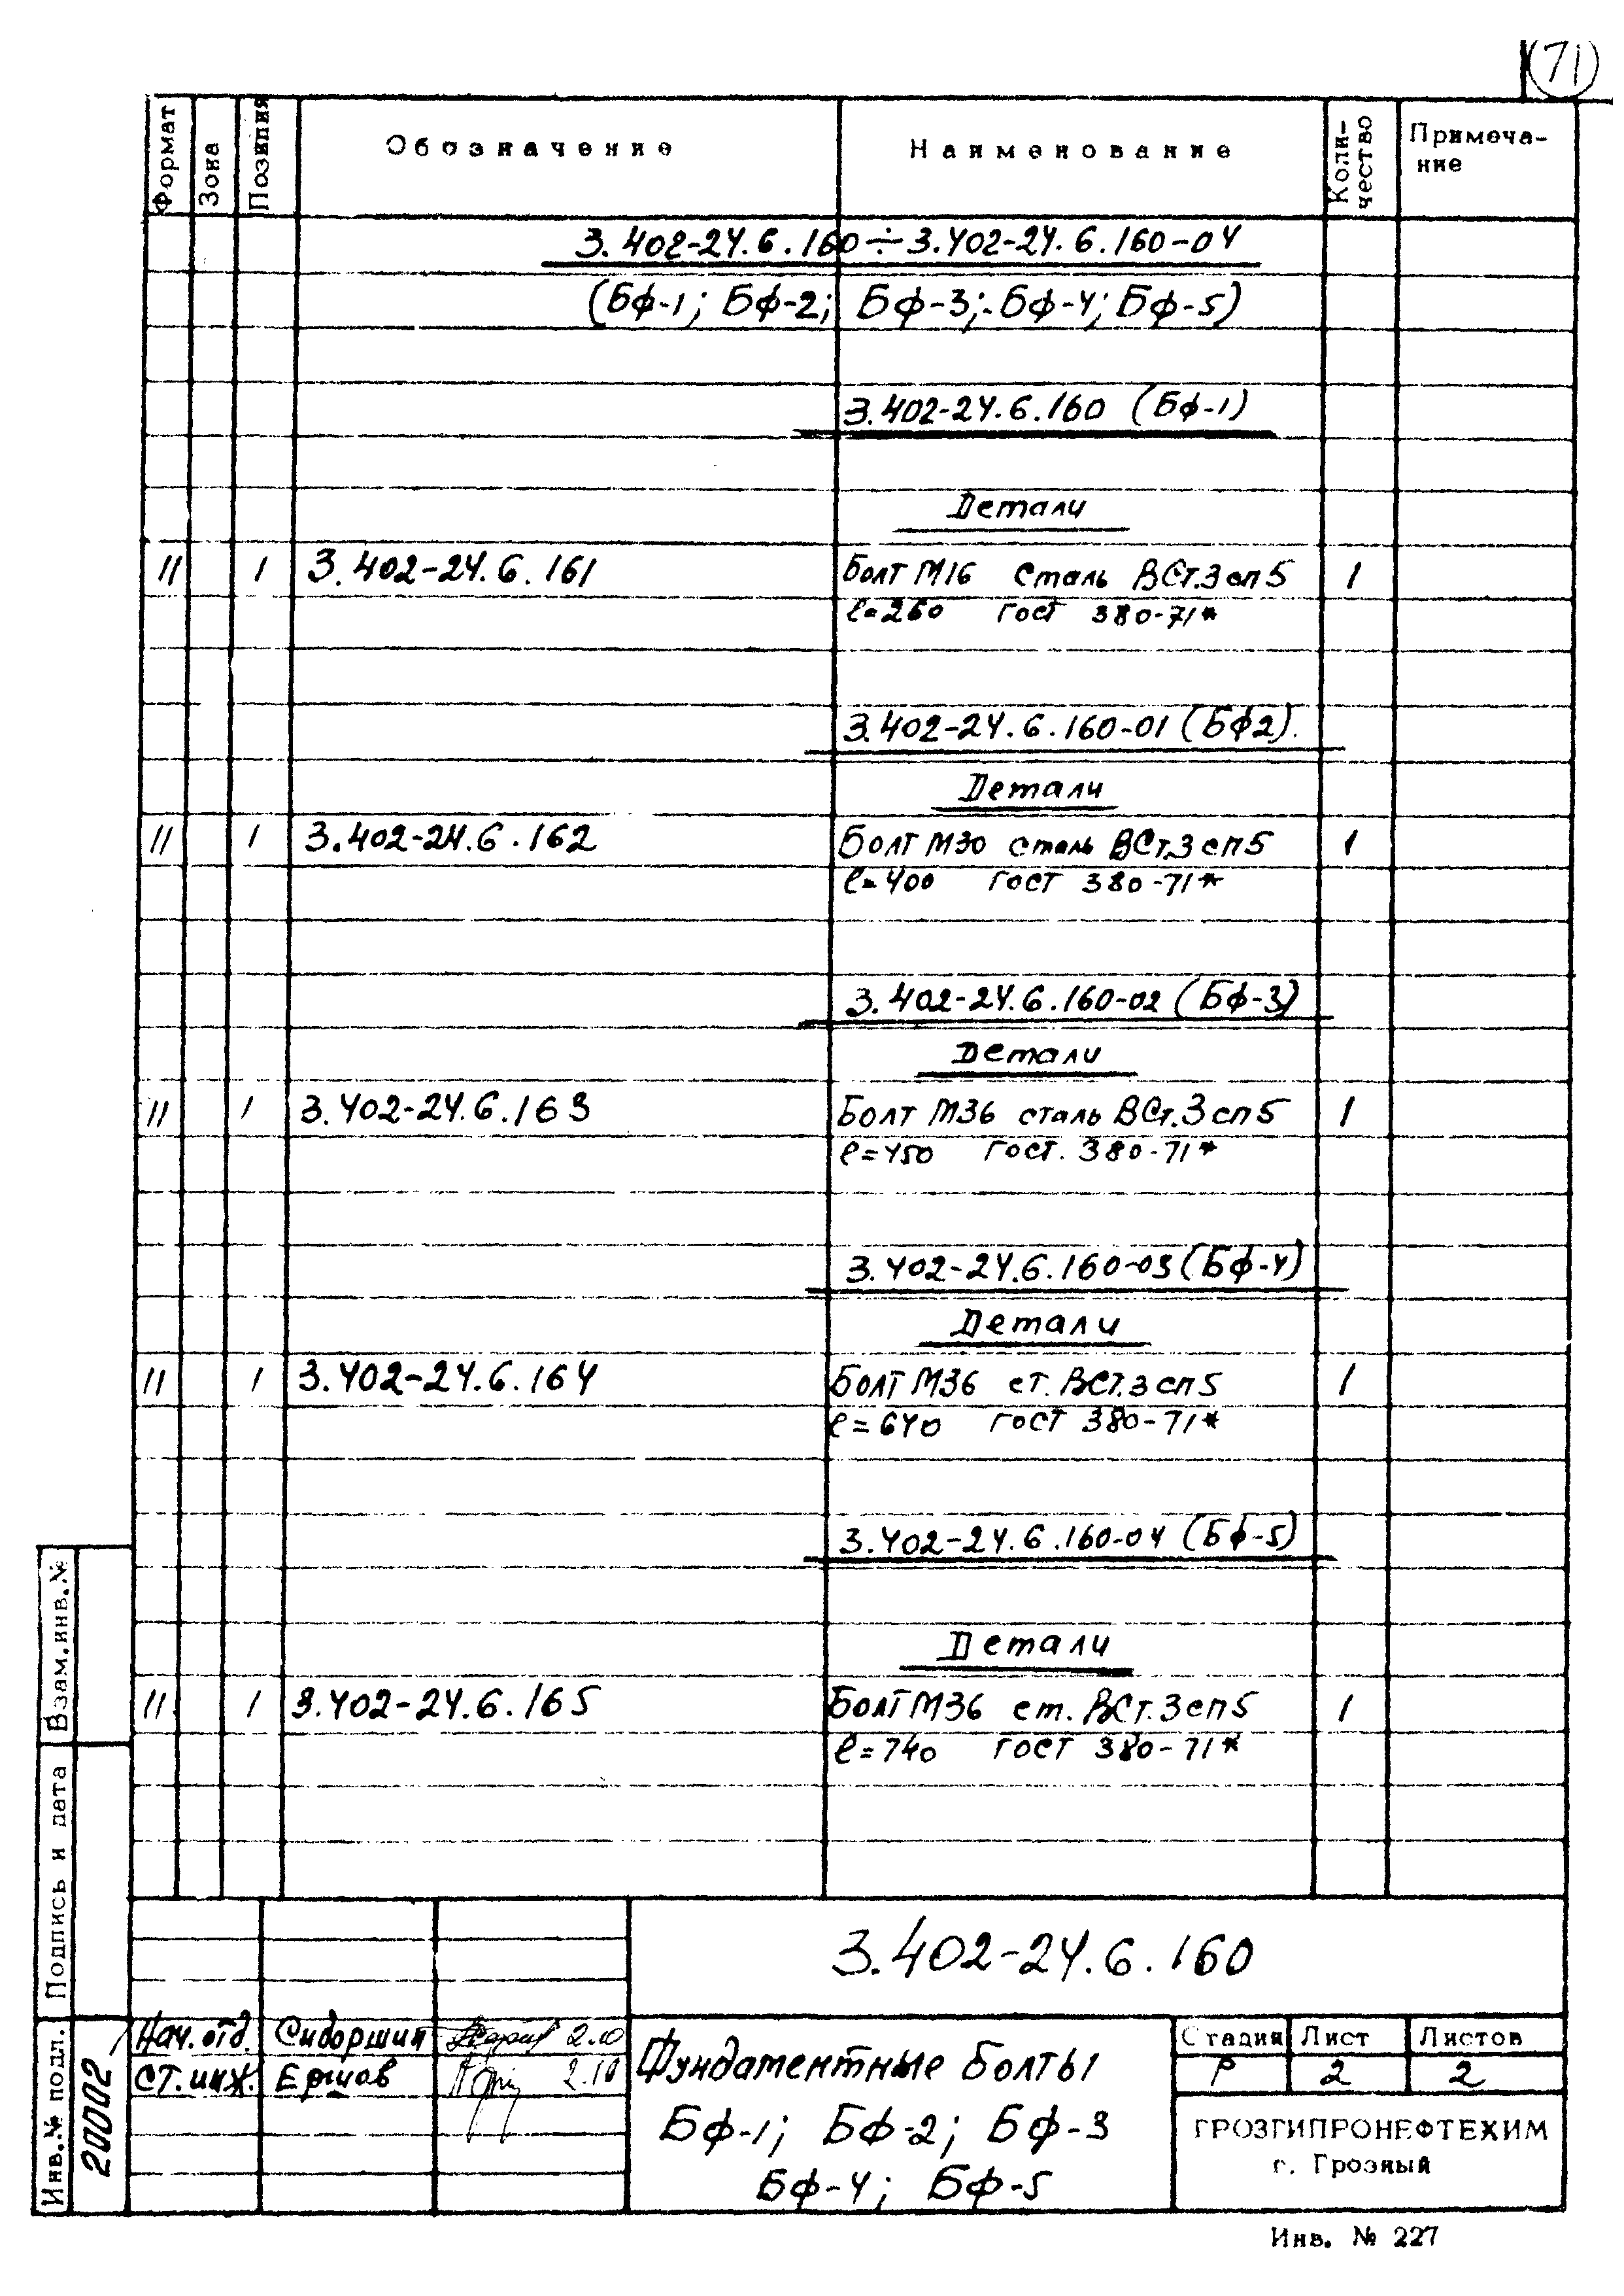 71
Формат Зона Позиция Обозначение Наименование Коли-чество Примеча-ние
3.402-24.6.160÷3.402-24.6.160-04
(Бф-1; Бф-2; Бф-3; Бф-4; Бф-5)
3.402-24.6.160 (Бф-1)
Детали
11 1 3.402-24.6.161 Болт М16 Сталь ВСт.3сп5 1
ℓ=260 ГОСТ 380-71*
3.402-24.6.160-01 (Бф2).
Детали
11 1 3.402-24.6.162 Болт М30 сталь ВСт.3сп5 1
ℓ=400 ГОСТ 380-71*
3.402-24.6.160-02 (Бф-3)
Детали
11 1 3.402-24.6.163 Болт М36 сталь ВСт.3сп5 1
ℓ=450 ГОСТ. 380-71*
3.402-24.6.160-03 (Бф-4)
Детали
11 1 3.402-24.6.164 Болт М36 ст. ВСт.3сп5 1
ℓ=640 ГОСТ 380-71*
3.402-24.6.160-04 (Бф-5)
Детали
11 1 3.402-24.6.165 Болт М36 ст. ВСт.3сп5 1
ℓ=740 ГОСТ 380-71*
Взам.инв.№
Подпись и дата
Инв.№ подл.
20002
3.402-24.6.160
Нач.отд. Сиборшин 2.10
СТ.инж. Ершов 2.10
Фундаментные болты
Бф-1; Бф-2; Бф-3
Бф-4; Бф-5
Стадия Лист Листов
Р 2 2
ГРОЗГИПРОНЕФТЕХИМ
г. Грозный
Инв. № 227